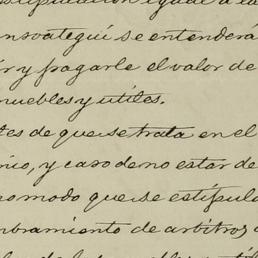 estipulacion igual a la
ansoategui se entenderá
ir y pagarle el valor de
muebles y utiles.
tes de que se trata en el
nio, y caso de no estar de
no modo que se estipula
mbramiento de arbitros